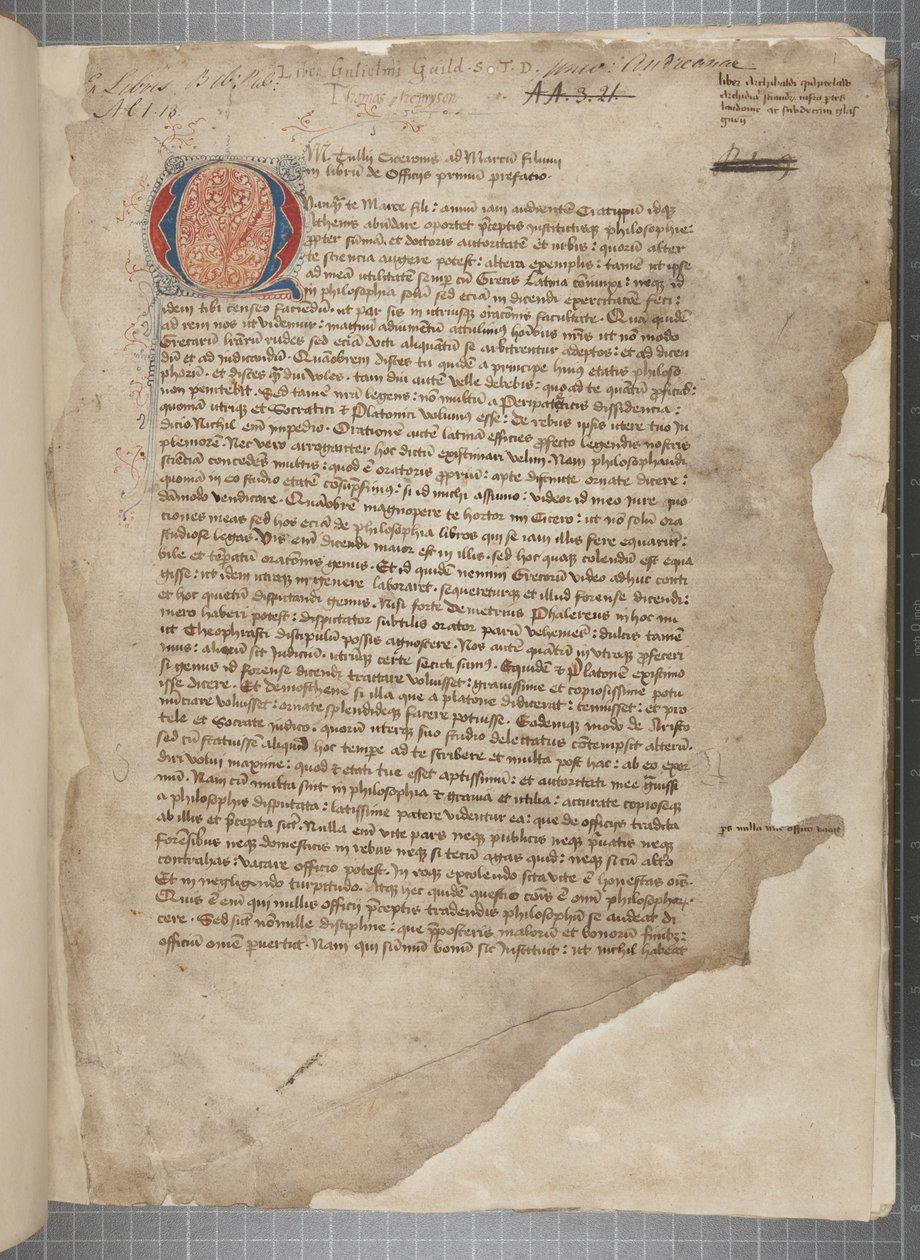 Ex Libris Bib: Pub: Univ: Andreanae
Liber Gulielmi Guild S. T. D.
Thomas Henryson
AA. 3. 21.
liber Archibaldi
M. Tullii Ciceronis ad Marcū filium
in librū de Officijs primū prefatio.
Quanqꝫ te Marce fili: annū iam audientē Cratippū idqꝫ
Athenis abūdare oportet p̄ceptis institutisqꝫ philosophie:
ꝓpter sūmā et doctoris autoritatē et urbis: quorū alter
te sciencia augere potest: altera exemplis: tamē ut ipse
ad meā utilitatē semꝑ cū Grecis Latina coniunxi: neqꝫ id
in philosophia solū sed eciā in dicendi exercitatōe feci:
idem tibi censeo faciendū. ut par sis in utriusqꝫ oracōnis facultate. Quā quidē
ad rem nos ut videmur: magnū adiumētū attulimꝰ hoībus nr̄is ut nō modo
Grecarū lr̄arū rudes sed eciā docti aliquantū se arbitrentur adeptos: et ad dicen
dū et ad iudicandū. Quāobrem disces tu quidē a principe huiꝰ etatis philoso
phorū. et disces qͣ̄diu voles. tam diu autē velle debebis: quoad te quātū ꝓficias:
non penitebit. Sed tamē nr̄a legens: nō multū a Peripateticis dissidencia:
quoniā utriqꝫ et Socratici ⁊ Platonici volumꝰ esse: De rebus ipsis utere tuo Iu
dicio. Nichil em̄ impedio. Orationē autē latinā efficies ꝓfecto legendis nostris
pleniorē. Nec vero arroganter hoc dictū existimari velim. Nam philosophandi
scienciā concedēs multis: quod ē oratoris ꝓpriū: apte distincte ornate dicere:
quoniā in eo studio etatē cōsūpsimꝰ: si id michi assumo: videor id meo iure quo
dāmodo vendicare. Quāobrē magnopere te hortor mi Cicero: ut nō solū ora
tiones meas sed hos eciā de philosophia libros qui se iam illis fere equarūt:
studiose legas. Vis em̄ dicendi maior est in illis. sed hoc quoqꝫ colendū est equa
bile et tēpatū oratōnis genus. Et id quidē nemini Grecorū video adhuc conti
gisse: ut idem utroqꝫ in genere laboraret. sequereturqꝫ et illud forense dicendi:
et hoc quietū disputandi genus. Nisi forte Demetrius Phalereus in hoc nu
mero haberi potest: disputator subtilis orator parū vehemēs: dulcis tamē
ut Theophrasti discipulū possis agnoscere. Nos autē quātū in utroqꝫ ꝓfeceri
mus: aliorū sit Iudiciū. utrūqꝫ certe secuti sumꝰ. Equidē ⁊ Platonē existimo
si genus id forense dicendi tractare voluisset: gravissime et copiosissime potu
isse dicere. Et Demosthenē si illa que a platone didicerat: tenuisset: et pro
nūciare voluisset: ornate splendideqꝫ facere potuisse. Eodemqꝫ modo de Aristo
tele et Socrate iudico. quorū uterqꝫ suo studio delectatus cōtempsit alterū.
sed cū statuissē aliquid hoc tempe ad te scribere et multa post hac: ab eo exor
diri volui maxime: quod ⁊ etati tue esset aptissimū: et autoritati mee
Nam cū multa sint in philosophia ⁊ gravia et utilia: accurate copioseqꝫ
a philosophis disputata: latissime patere videntur ea: que de officijs tradita
ab illis et p̄cepta sūt. Nulla em̄ vite pars neqꝫ publicis neqꝫ pͥvatis neqꝫ
forēsibus neqꝫ domesticis in rebus neqꝫ si tecū agas quid: neqꝫ si cū alto
contrahas: vacare officio potest. In eoqꝫ excolendo sita vite ē honestas oīs.
Et in negligendo turpitudo. Atqꝫ hec quidē questio cōīs ē oīm philosophorꝝ.
Quis ē em̄ qui nullis officii p̄ceptis tradendis philosophū se audeat di
cere. Sed sūt nōnulle discipline: que ꝓpositis malorū et bonorū finibꝫ:
officiū omne ꝑvertūt. Nam qui sūmū bonū sic Instituit: ut nichil habeat